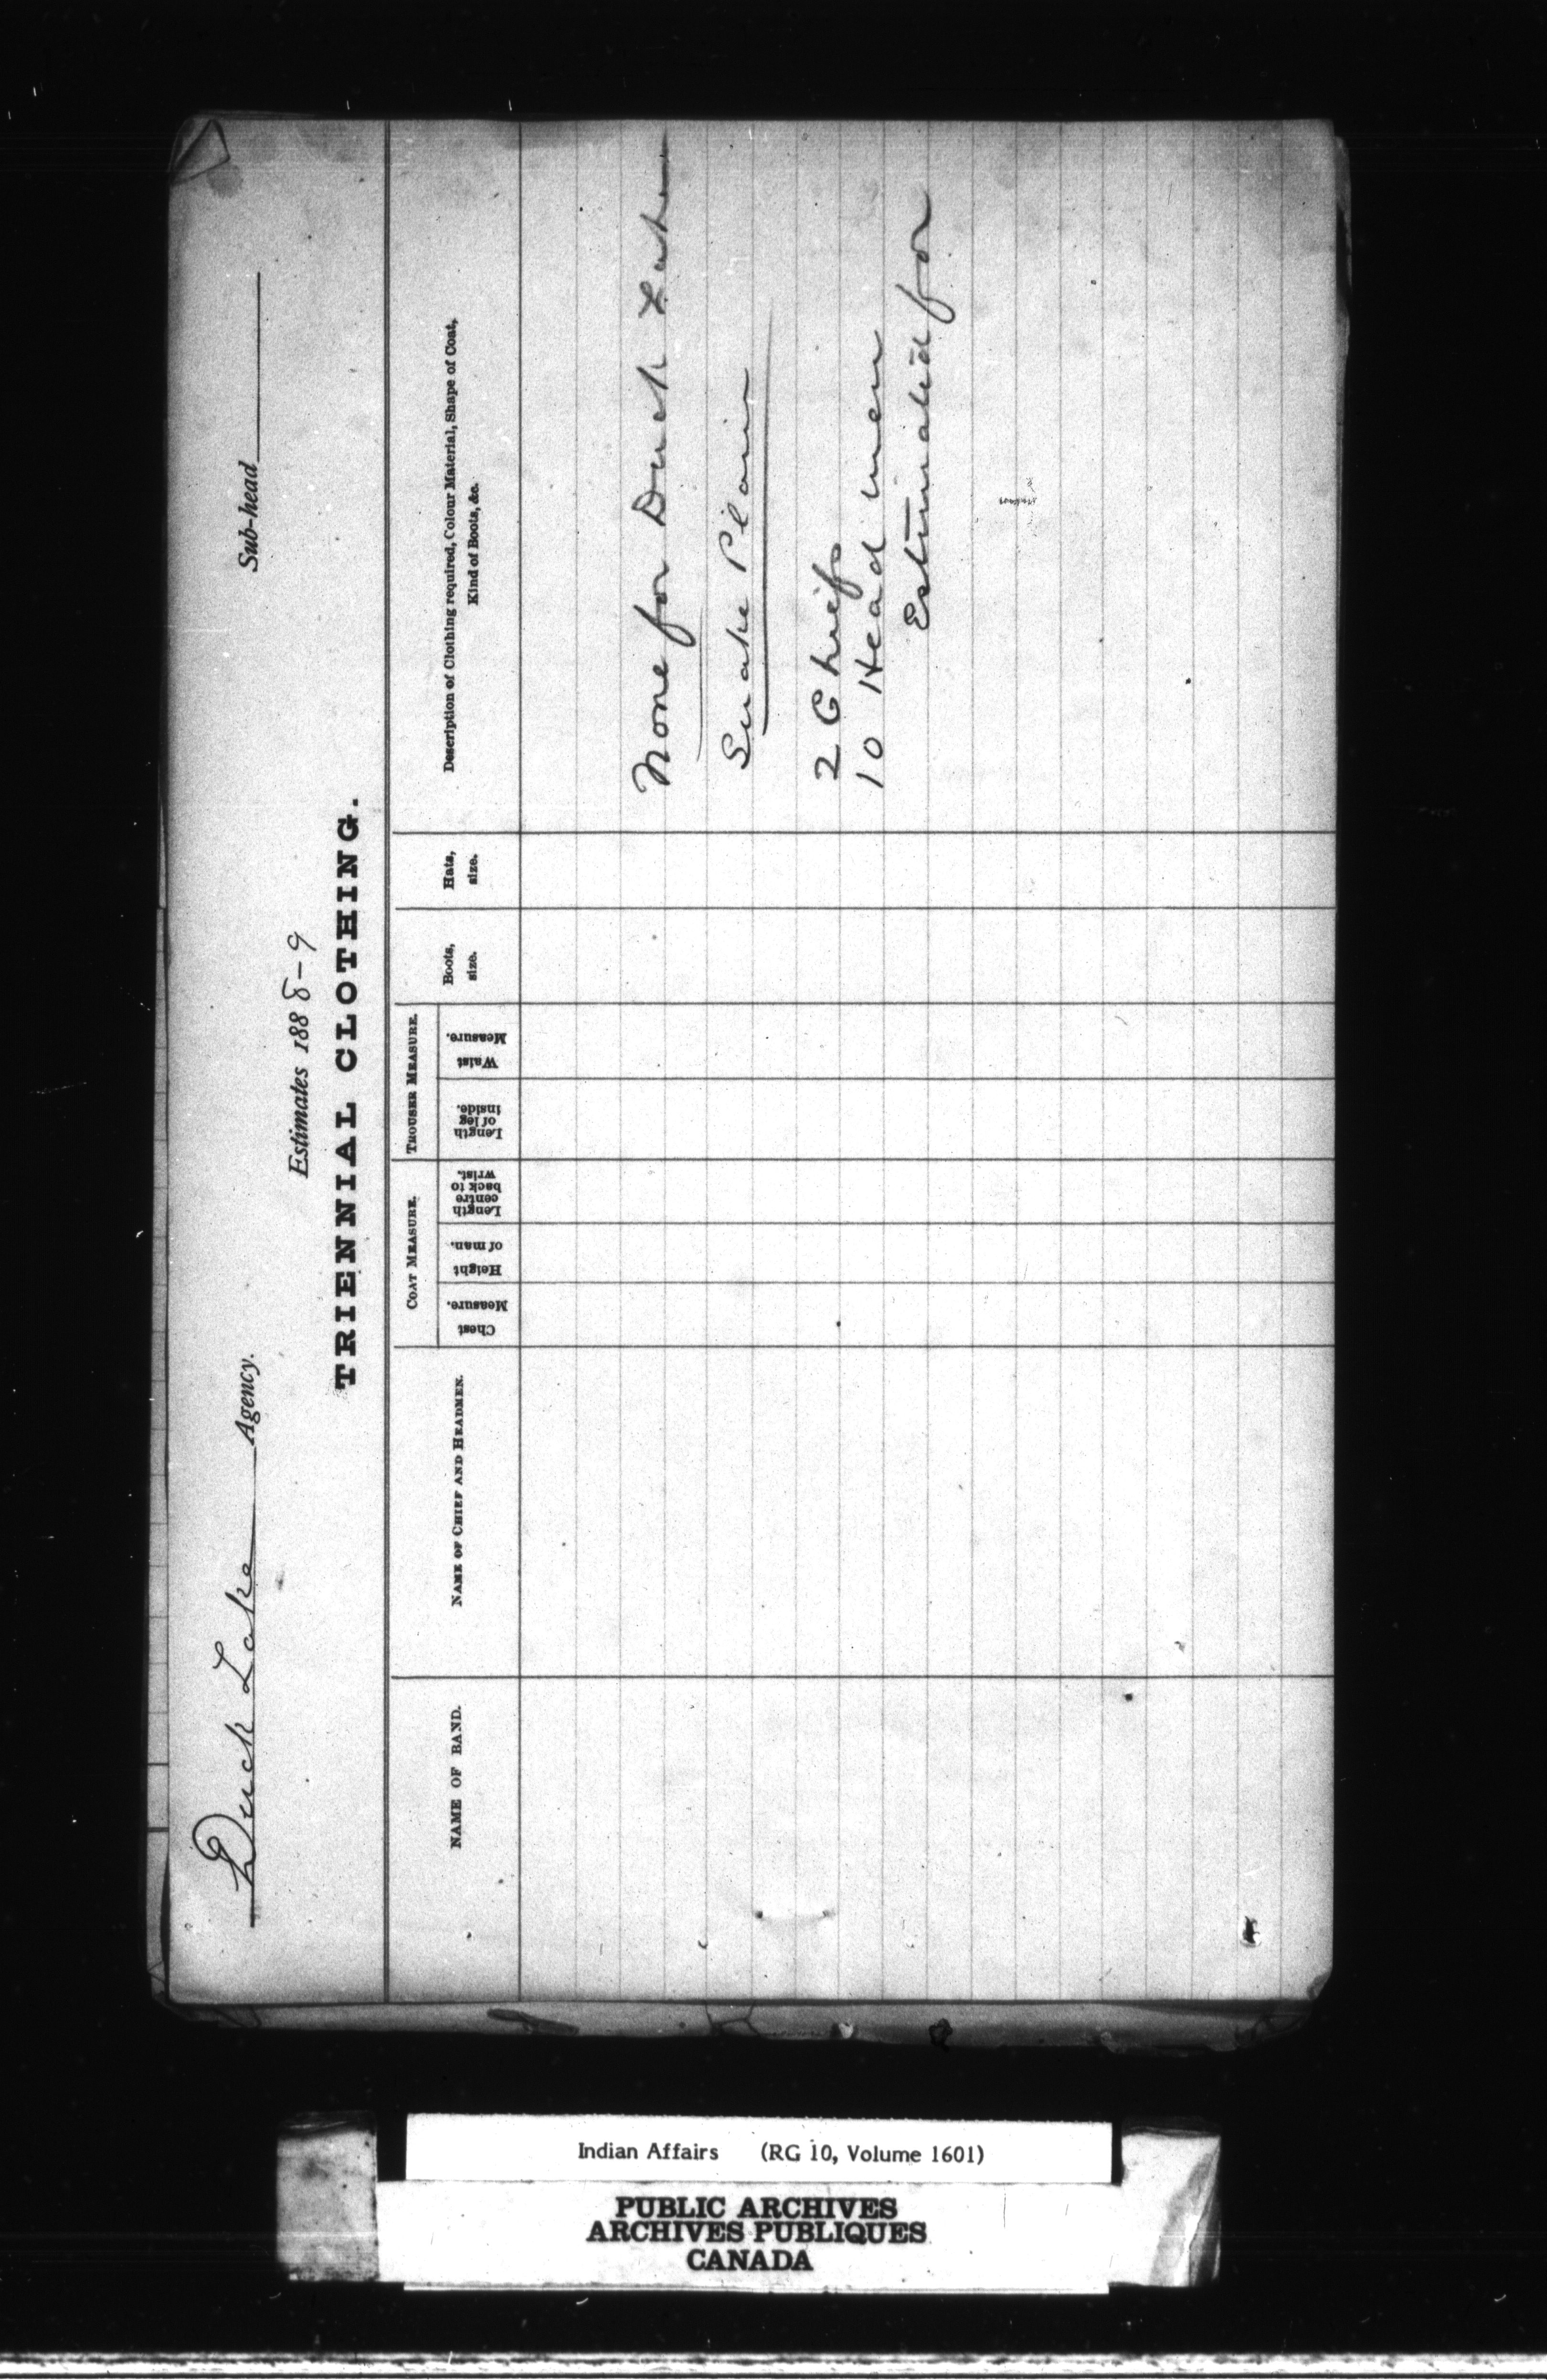 Duck Lake Agency. Sub-head
Estimates 1888-9
TRIENNIAL CLOTHING.
NAME OF BAND.
NAME OF CHIEF AND HEADMEN.
COAT MEASURE.
Chest Measure.
Height of man.
Length centre back to wrist.
TROUSER MEASURE.
Length of leg inside.
Waist Measure.
Boots, size.
Hats, size.
Description of Clothing required, Colour Material, Shape of Coat,
Kind of Boots, &c.
None for Duck Lake
Snake Plain
2 Chiefs
10 Head men
Estimated for
Indian Affairs (RG 10, Volume 1601)
PUBLIC ARCHIVES
ARCHIVES PUBLIQUES
CANADA